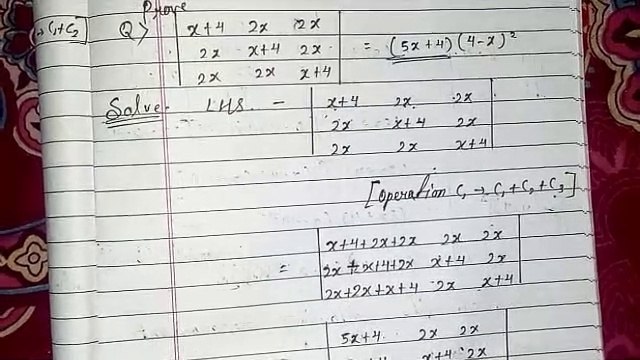 → C₁+C₂]
Prove
Q> | x+4 2x 2x |
| 2x x+4 2x | = (5x+4) (4-x)²
| 2x 2x x+4 |
Solve- LHS - | x+4 2x 2x |
| 2x x+4 2x |
| 2x 2x x+4 |
[Operation C₁ → C₁+C₂+C₃]
| x+4+2x+2x 2x 2x |
= | 2x+2x+4+2x x+4 2x |
| 2x+2x+x+4 2x x+4 |
| 5x+4 2x 2x |
x+4 2x